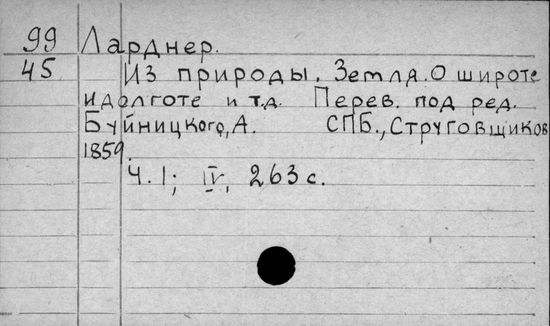 99 Ларднер.
45 Из природы. Земля. О широте
и долготе и т.д. Перев. под ред.
Буйницкого, А. СПБ., Струговщиков
1859.
Ч. 1; IV, 263 с.